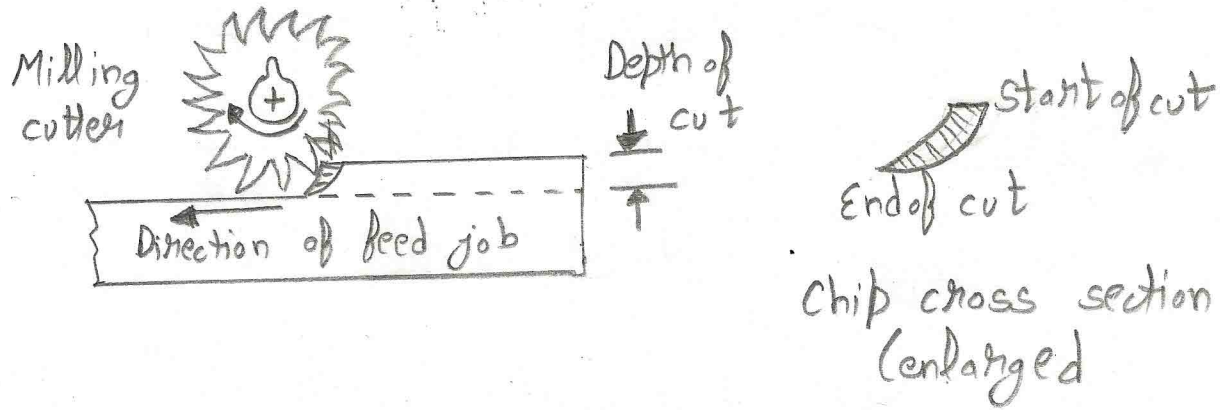 Milling
cutter
Depth of
cut
Direction of feed job
Start of cut
End of cut
Chip cross section
(enlarged